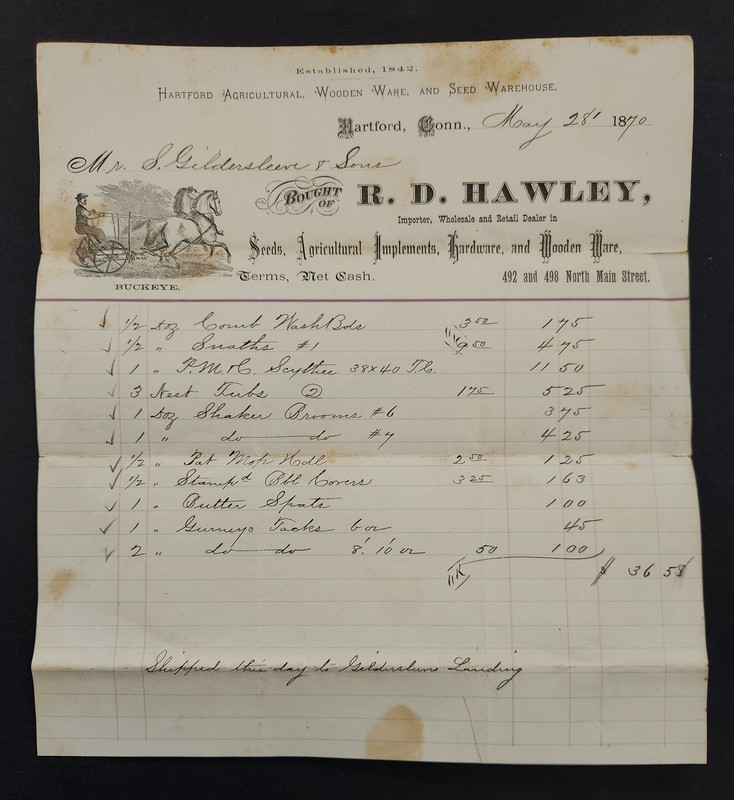 Established, 1842.
Hartford Agricultural, Wooden Ware, and Seed Warehouse.
Hartford, Conn., May 28' 1870
Mr. S. Gildersleeve & Sons
Bought of R. D. HAWLEY,
Importer, Wholesale and Retail Dealer in
Seeds, Agricultural Implements, Hardware, and Wooden Ware,
Terms, Net Cash. 492 and 498 North Main Street.
BUCKEYE.
1/2 Doz Comb Wash Bds 3 50 1 75
1/2 " Snaths #1 9 50 4 75
1 " P. M. & C. Scythes 38x40 11 50
3 Nest Tubs ② 1 75 5 25
1 Doz Shaker Brooms #6 3 75
1 " do do #7 4 25
1/2 " Pat Mop Hdl 2 50 1 25
1/2 " Stamp'd Bbl Covers 3 25 1 63
1 " Butter Spats 1 00
1 " Gurneys Tacks 6 oz 45
2 " do do 8. 10 oz 50 1 00
$ 36 58
Shipped this day to Gildersleeve Landing